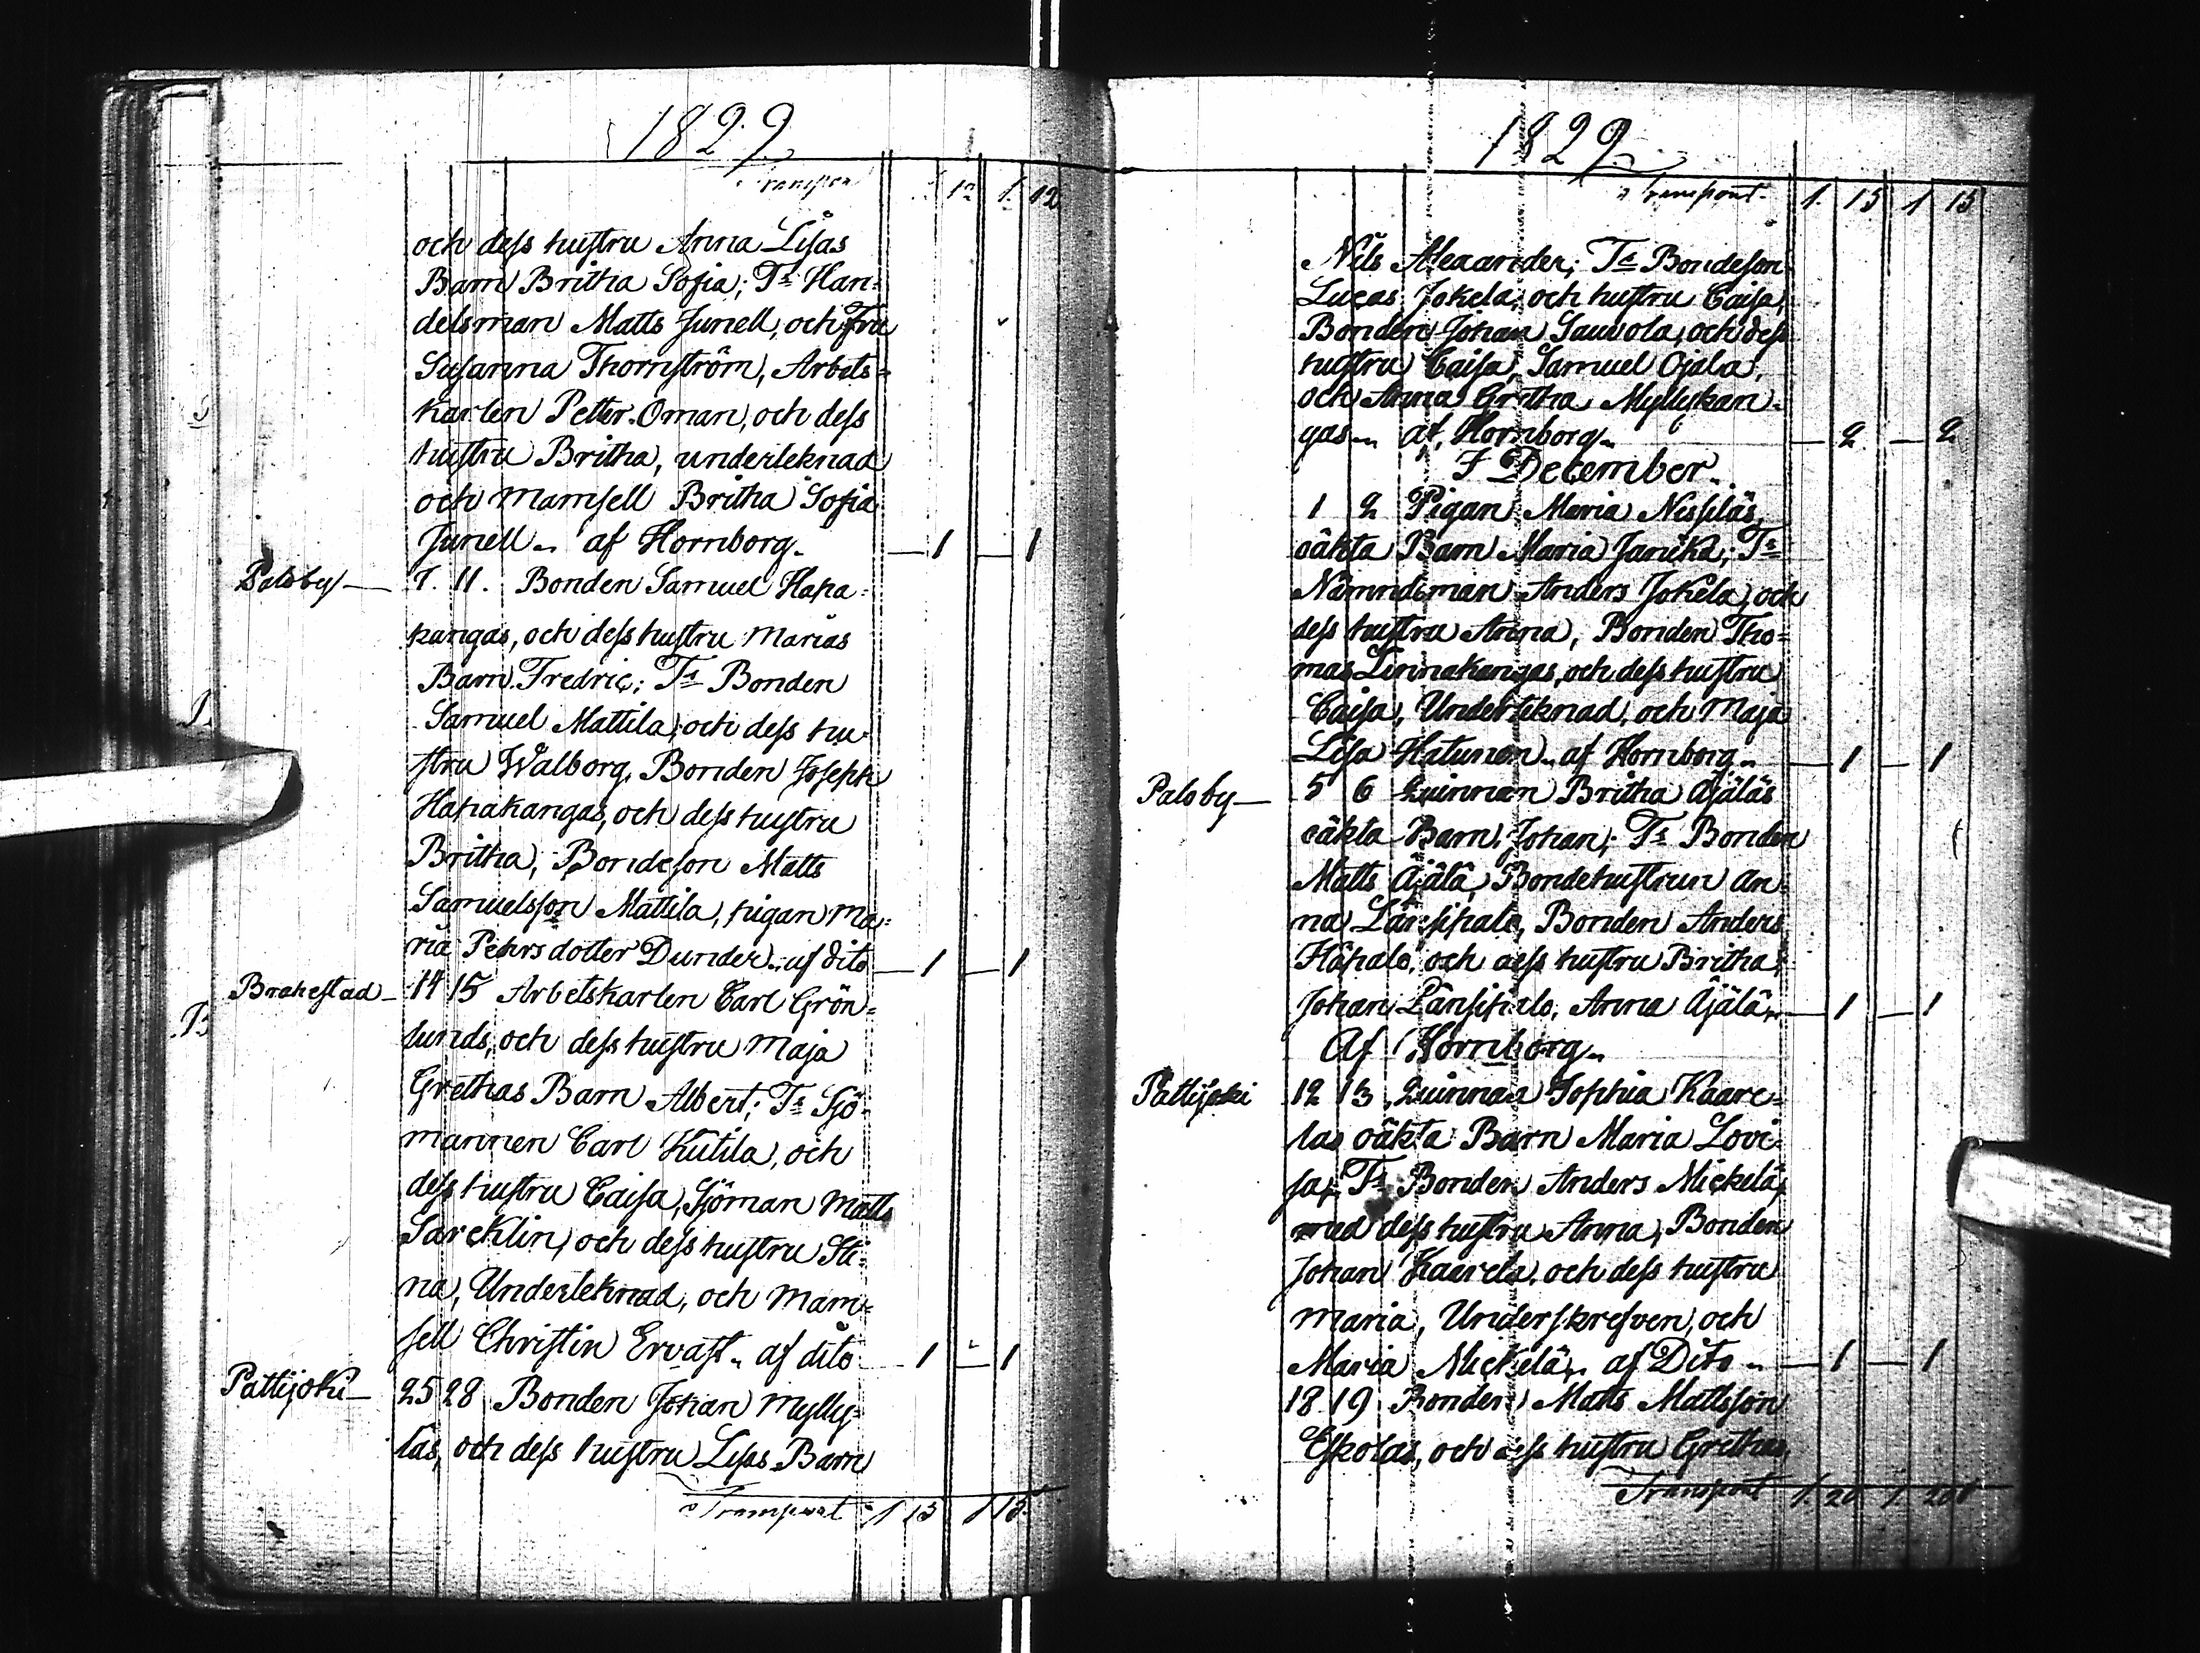 1829
Transport 1. 12 1. 12
och dess hustru Anna Lisas
Barn Britha Sofia; Ts Han=
delsman Matts Junell, och Fru
Susanna Thornström, Arbets=
karlen Petter Öman, och dess
hustru Britha, underteknad
och Mamsell Britha Sofia
Junell. af Hornborg. — 1 — 1
Paloby — 7. 11. Bonden Samuel Hapa=
kangas, och dess hustru Marias
Barn Fredric; Ts Bonden
Samuel Mattila, och dess hu=
stru Walborg, Bonden Joseph
Hapakangas, och dess hustru
Britha, Bondeson Matts
Samuelsson Mattila, pigan Ma=
ria Pehrsdotter Dunder. af dito — 1 — 1
Brahestad — 14 15 Arbetskarlen Carl Grön=
lunds, och dess hustru Maja
Grethas Barn Albert; Ts Sjö=
mannen Carl Kutila, och
dess hustru Caisa, Sjöman Matts
Sarcklin, och dess hustru Sti=
na, Underteknad, och Mam=
sell Christin Ervast. af dito — 1 — 1
Pattijoki — 25 28 Bonden Johan Mylly=
las, och dess hustru Lisas Barn
Transport 1 15 1 15.
1829
Transport. 1. 15 1 15
Nils Alexander; Ts Bondeson
Lucas Jokela, och hustru Caisa,
Bonden Johan Sauvola, och dess
hustru Caisa, Samuel Ojala,
och Anna Gretha Myllykan=
gas. af Hornborg. — 2 — 2
I December.
1 2 Pigan Maria Nissiläs
oäkta Barn Maria Janika; Ts
Nämndeman Anders Jokela, och
dess hustru Anna, Bonden Tho=
mas Linnakangas, och dess hustru
Caisa, Underteknad, och Maja
Lisa Hatunen. af Hornborg. — 1 — 1
Paloby — 5 6 Quinnan Britha Äjäläs
oäkta Barn Johan; Ts Bonden
Matts Äjälä, Bondehustrun An=
na Länsipalo, Bonden Anders
Hapalo, och dess hustru Britha,
Johan Länsipalo, Anna Äjälä. — 1 — 1
Af Hornborg.
Pattijoki 12 13 Quinnan Sophia Kaare=
las oäkta Barn Maria Lovi=
sa; Ts Bonden Anders Mickelä,
med dess hustru Anna, Bonden
Johan Kaarela, och dess hustru
Maria, Underskrefven, och
Maria Mickelä. af Dito — 1 — 1
18 19 Bonden Matts Mattsson
Eskolas, och dess hustru Grethas
Transport 1. 20 1. 20